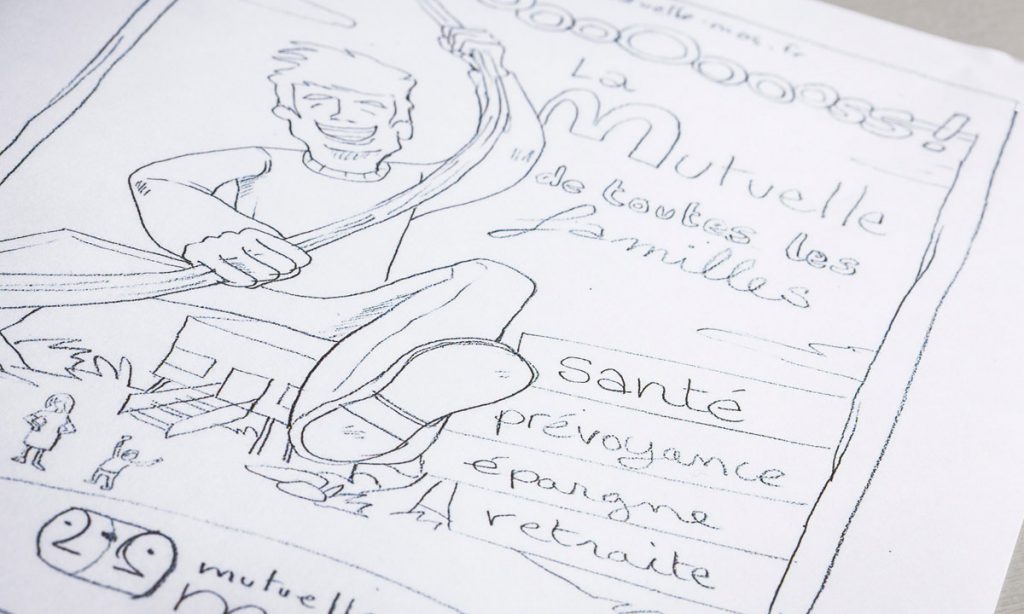 OoooOoooss!
La
Mutuelle
de toutes les
familles
santé
prévoyance
épargne
retraite
mutuelle